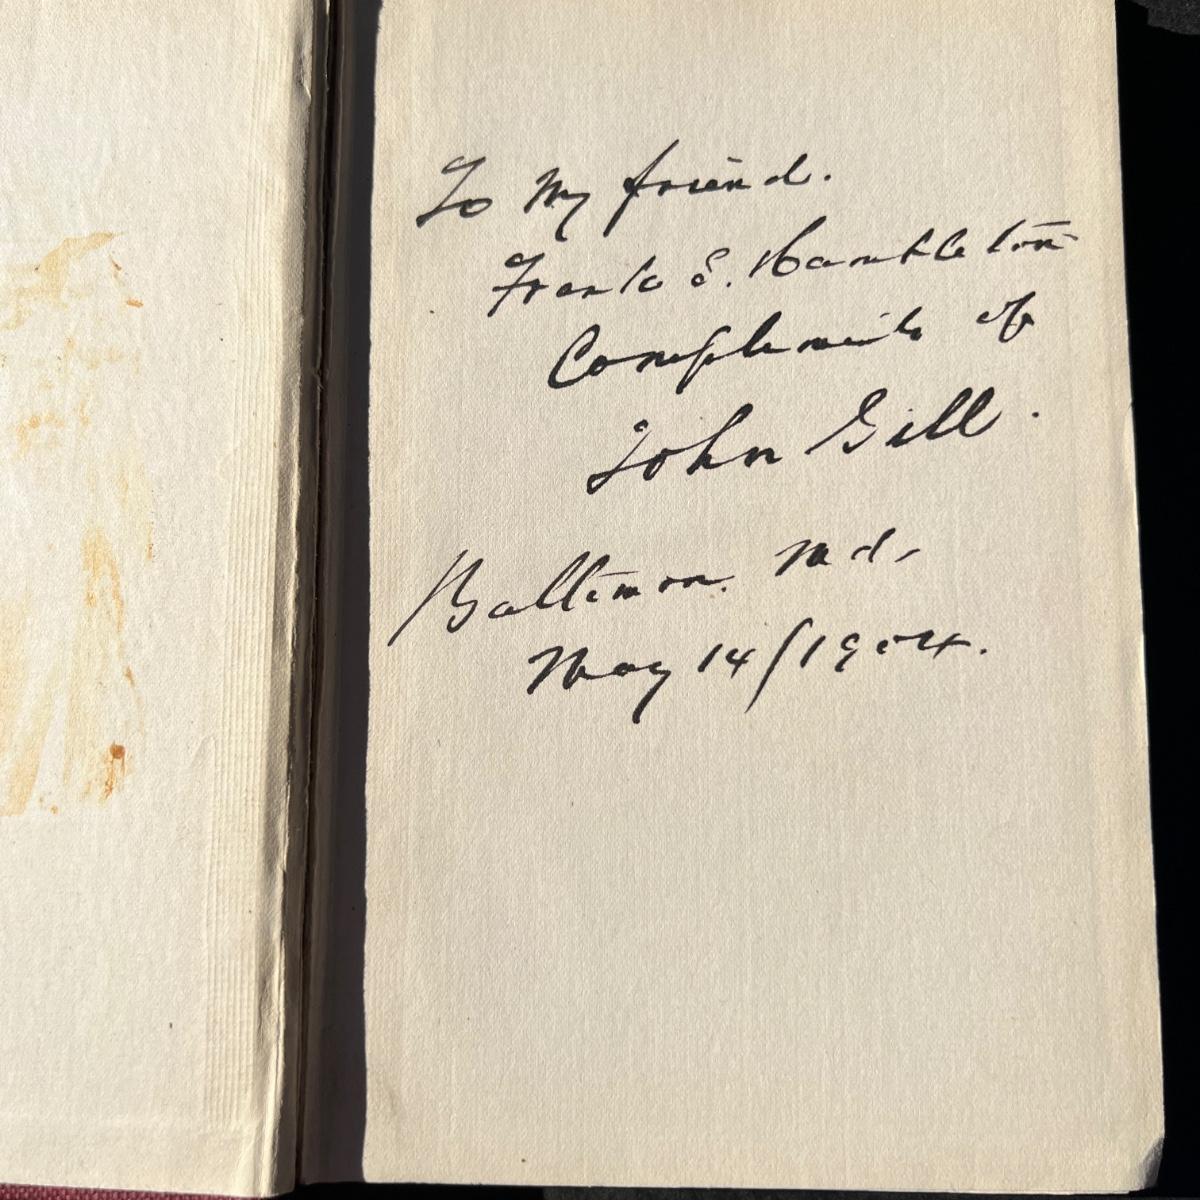 To My friend.
Frank S. Hambleton
Compliments of
John Gill.
Baltimore. Md.
May 14/1904.